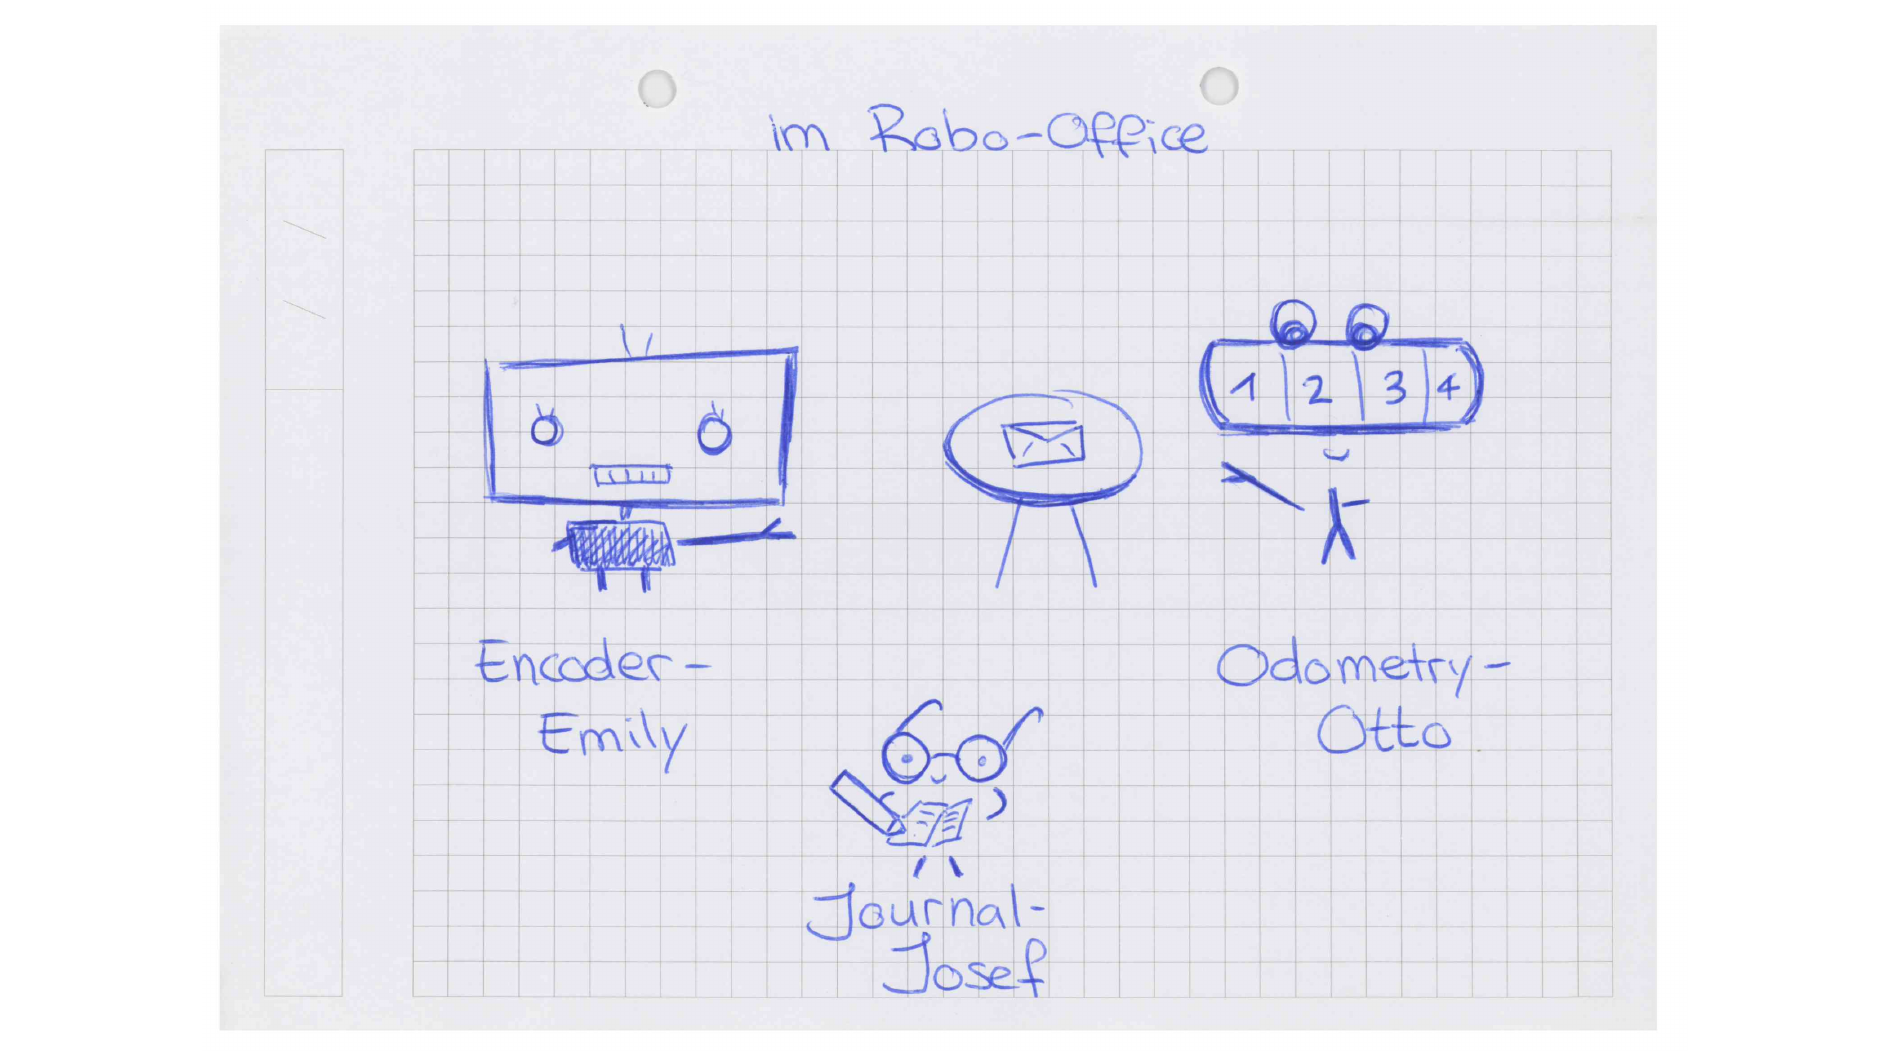 im Robo-Office
1 2 3 4
Encoder-
Emily
Odometry-
Otto
Journal-
Josef